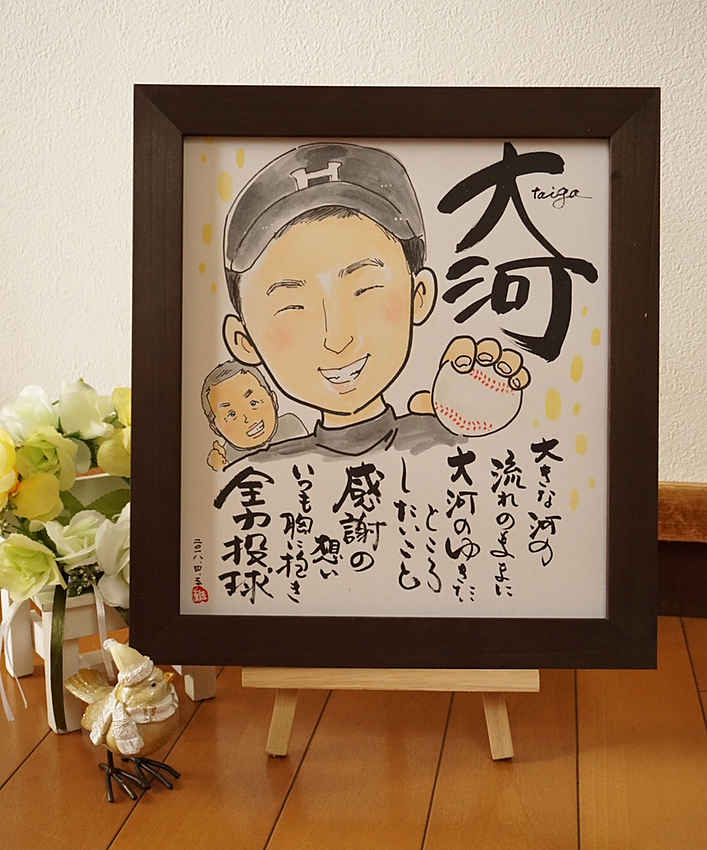 大河
taiga
H
大きな河の
流れのままに
大河のゆきたい
ところ
したいこと
感謝の
想い
いつも胸に抱き
全力投球
二〇一八.四.三